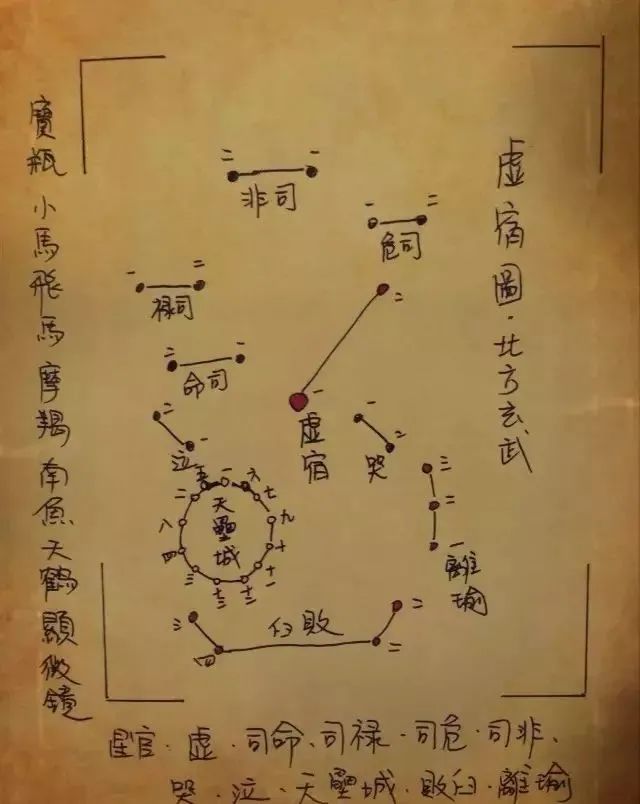 虚宿圖·北方玄武
二 一
非司
一 二
危司
一 二
禄司
二
二 一
命司
一
虚宿
二
一
泣
一
二
哭
三
二
一
離瑜
五 一 六
二 七
八 九
四 十
三 十一
十三 十二
天壘城
三 二
臼敗
四 二
寶瓶 小馬 飛馬 摩羯 南魚 天鶴 顯微鏡
星官·虚·司命、司禄·司危·司非、
哭·泣·天壘城·敗臼·離瑜